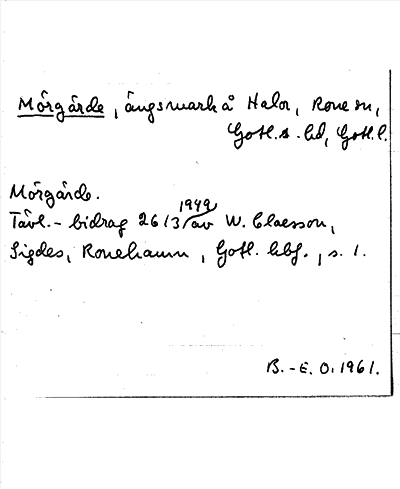 Mörgärde, ängsmark å Halor, Rone sn,
Gotl. s. hd, Gotl. l.
Mörgärde.
Tävl.-bidrag 26/3 1949 av W. Claesson,
Sigdes, Ronehamn, Gotl. hbf., s. 1.
B.-E. O. 1961.